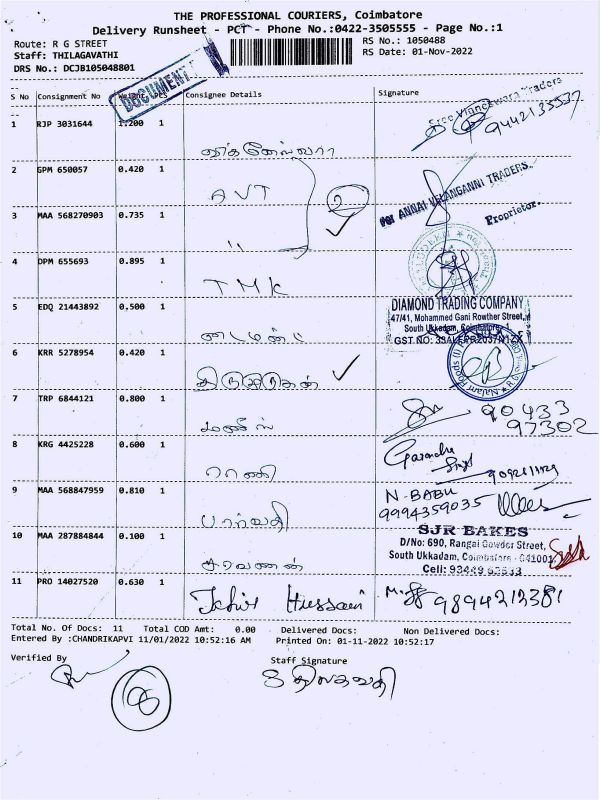 THE PROFESSIONAL COURIERS, Coimbatore
Delivery Runsheet - PCT - Phone No.:0422-3505555 - Page No.:1
Route: R G STREET
RS No.: 1050488
Staff: THILAGAVATHI
RS Date: 01-Nov-2022
DRS No.: DCJB105048801
DOCUMENT
S No Consignment No Weight PCS Consignee Details Signature
Sree Vigneswara Traders
1 RJP 3031644 1.200 1
9442135537
விக்னேஸ்வரா
2 GPM 650057 0.420 1
AVT
2
For ANNAI VELANGANNI TRADERS.
Proprietor.
3 MAA 568270903 0.735 1
"
4 DPM 655693 0.895 1
TMK
5 EDQ 21443892 0.500 1
டைமண்ட்
DIAMOND TRADING COMPANY
47/41, Mohammed Gani Rowther Street,
South Ukkadam, Coimbatore. 1
6 KRR 5278954 0.420 1
7 TRP 6844121 0.800 1
90433
97302
8 KRG 4425228 0.600 1
ராணி
9 MAA 568847959 0.810 1
பார்வதி
N. BABU
9994359035
10 MAA 287884844 0.100 1
சரவணன்
SJR BAKES
D/No: 690, Rangai Gowder Street,
South Ukkadam, Coimbatore - 641001
Cell:
11 PRO 14027520 0.630 1
Tahir Hussain
9894212381
Total No. Of Docs: 11 Total COD Amt: 0.00 Delivered Docs: Non Delivered Docs:
Entered By :CHANDRIKAPVI 11/01/2022 10:52:16 AM Printed On: 01-11-2022 10:52:17
Verified By
Staff Signature
திலகவதி